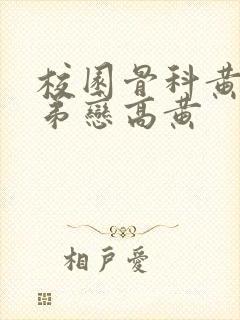 校園骨科黃
弟戀高黃
相戶愛